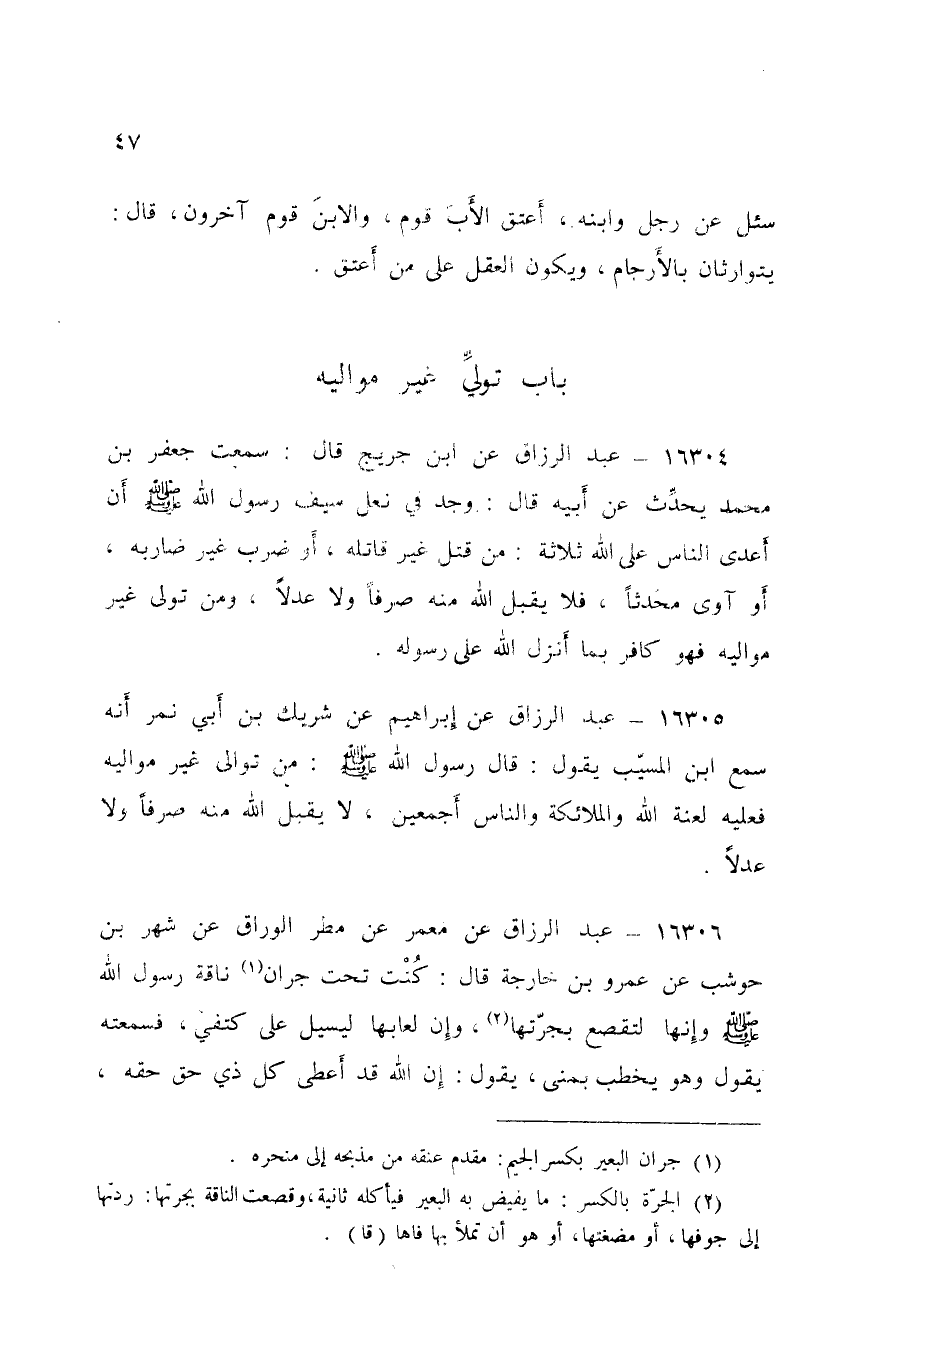 ٤٧
سئل عن رجل وابنه ، أعتق الأَبَ قوم ، والابنَ قوم آخرون ، قال :
يتوارثان بالأرحام ، ويكون العقل على من أعتق .
باب تولِّي غير مواليه
١٦٣٠٤ – عبد الرزاق عن ابن جريج قال : سمعت جعفر بن
محمد يحدِّث عن أبيه قال : وجد في نعل سيف رسول الله ﷺ أن
أعدى الناس على الله ثلاثة : من قتل غير قاتله ، أو ضرب غير ضاربه ،
أو آوى محدثاً ، فلا يقبل الله منه صرفاً ولا عدلاً ، ومن تولى غير
مواليه فهو كافر بما أنزل الله على رسوله .
١٦٣٠٥ – عبد الرزاق عن إبراهيم عن شريك بن أبي نمر أنه
سمع ابن المسيّب يقول : قال رسول الله ﷺ : من توالى غير مواليه
فعليه لعنة الله والملائكة والناس أجمعين ، لا يقبل الله منه صرفاً ولا
عدلاً .
١٦٣٠٦ – عبد الرزاق عن معمر عن مطر الوراق عن شهر بن
حوشب عن عمرو بن خارجة قال : كُنْت تحت جران(١) ناقة رسول الله
ﷺ وإنها لتقصع بجرّتها(٢) ، وإن لعابها ليسيل على كتفي ، فسمعته
يقول وهو يخطب بمنى ، يقول : إن الله قد أعطى كل ذي حق حقه ،
(١) جران البعير بكسر الجيم : مقدم عنقه من مذبحه إلى منحره .
(٢) الجرّة بالكسر : ما يفيض به البعير فيأكله ثانية ، وقصعت الناقة بجرتها : ردتها
إلى جوفها ، أو مضغتها ، أو هو أن تملأ بها فاها ( قا ) .